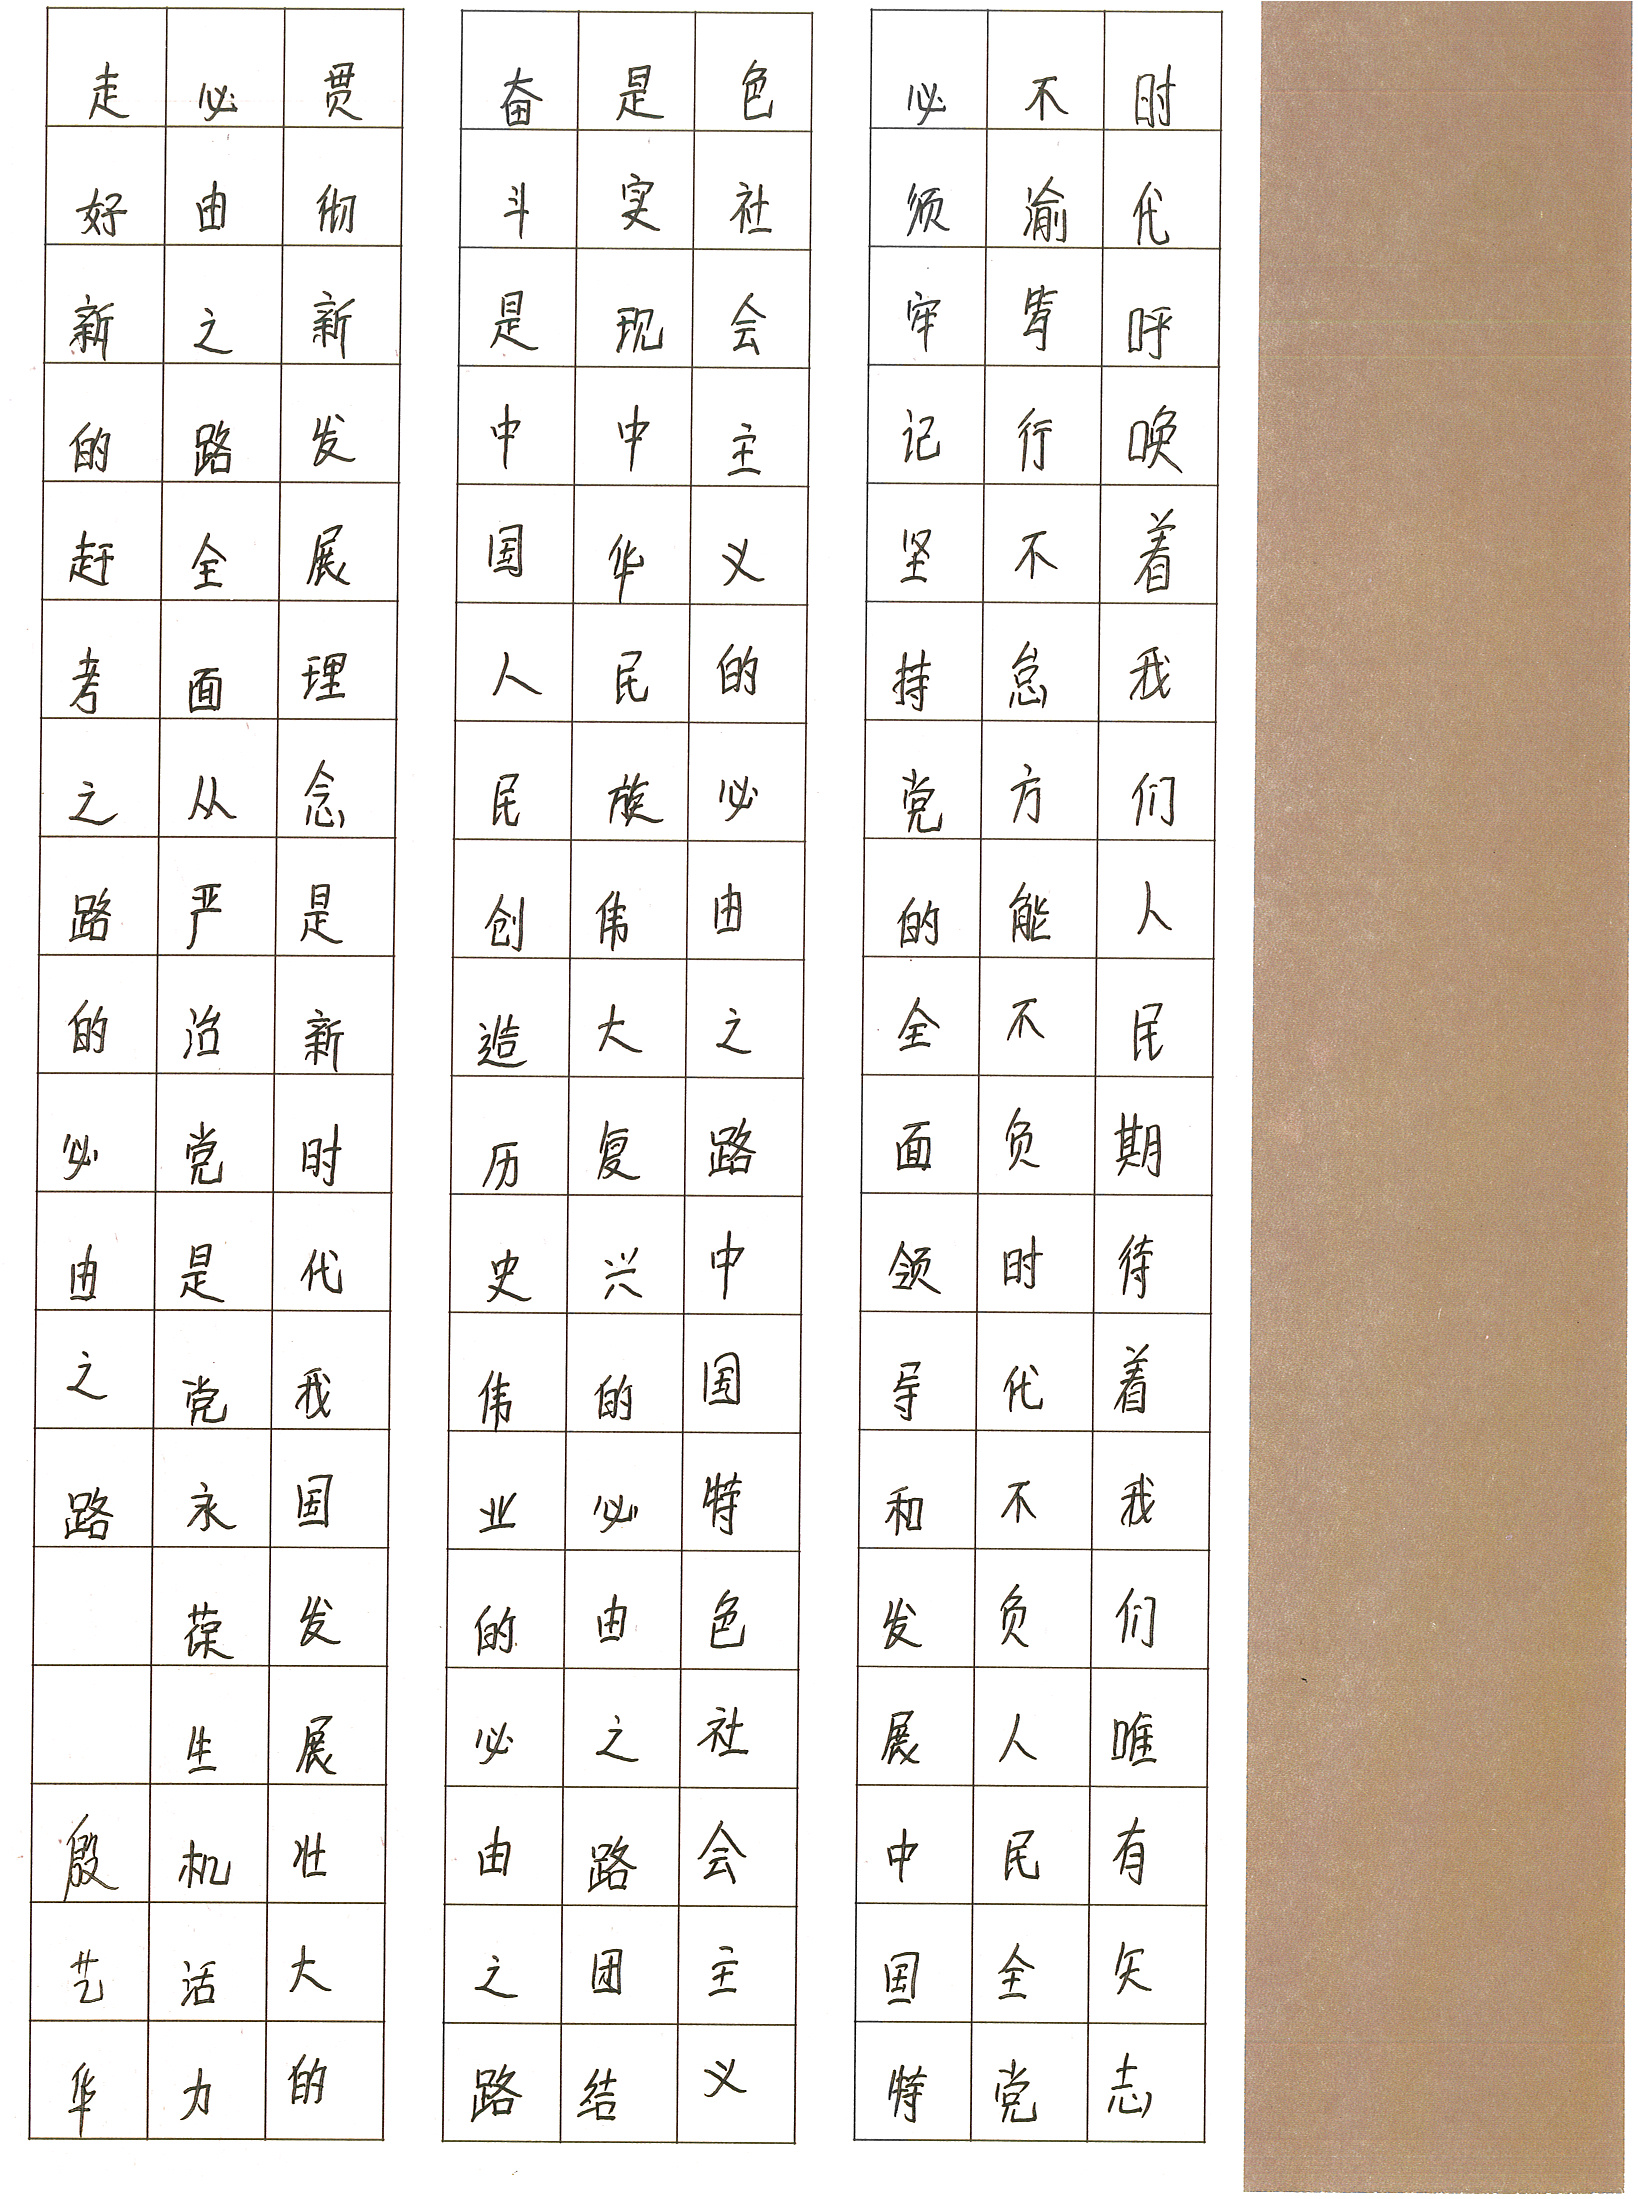 时代呼唤着我们人民期待着我们唯有矢志
不渝笃行不怠方能不负时代不负人民全党
必须牢记坚持党的全面领导和发展中国特
色社会主义的必由之路中国特色社会主义
是实现中华民族伟大复兴的必由之路团结
奋斗是中国人民创造历史伟业的必由之路
贯彻新发展理念是新时代我国发展壮大的
必由之路全面从严治党是党永葆生机活力
走好新的赶考之路的必由之路 殷艺华